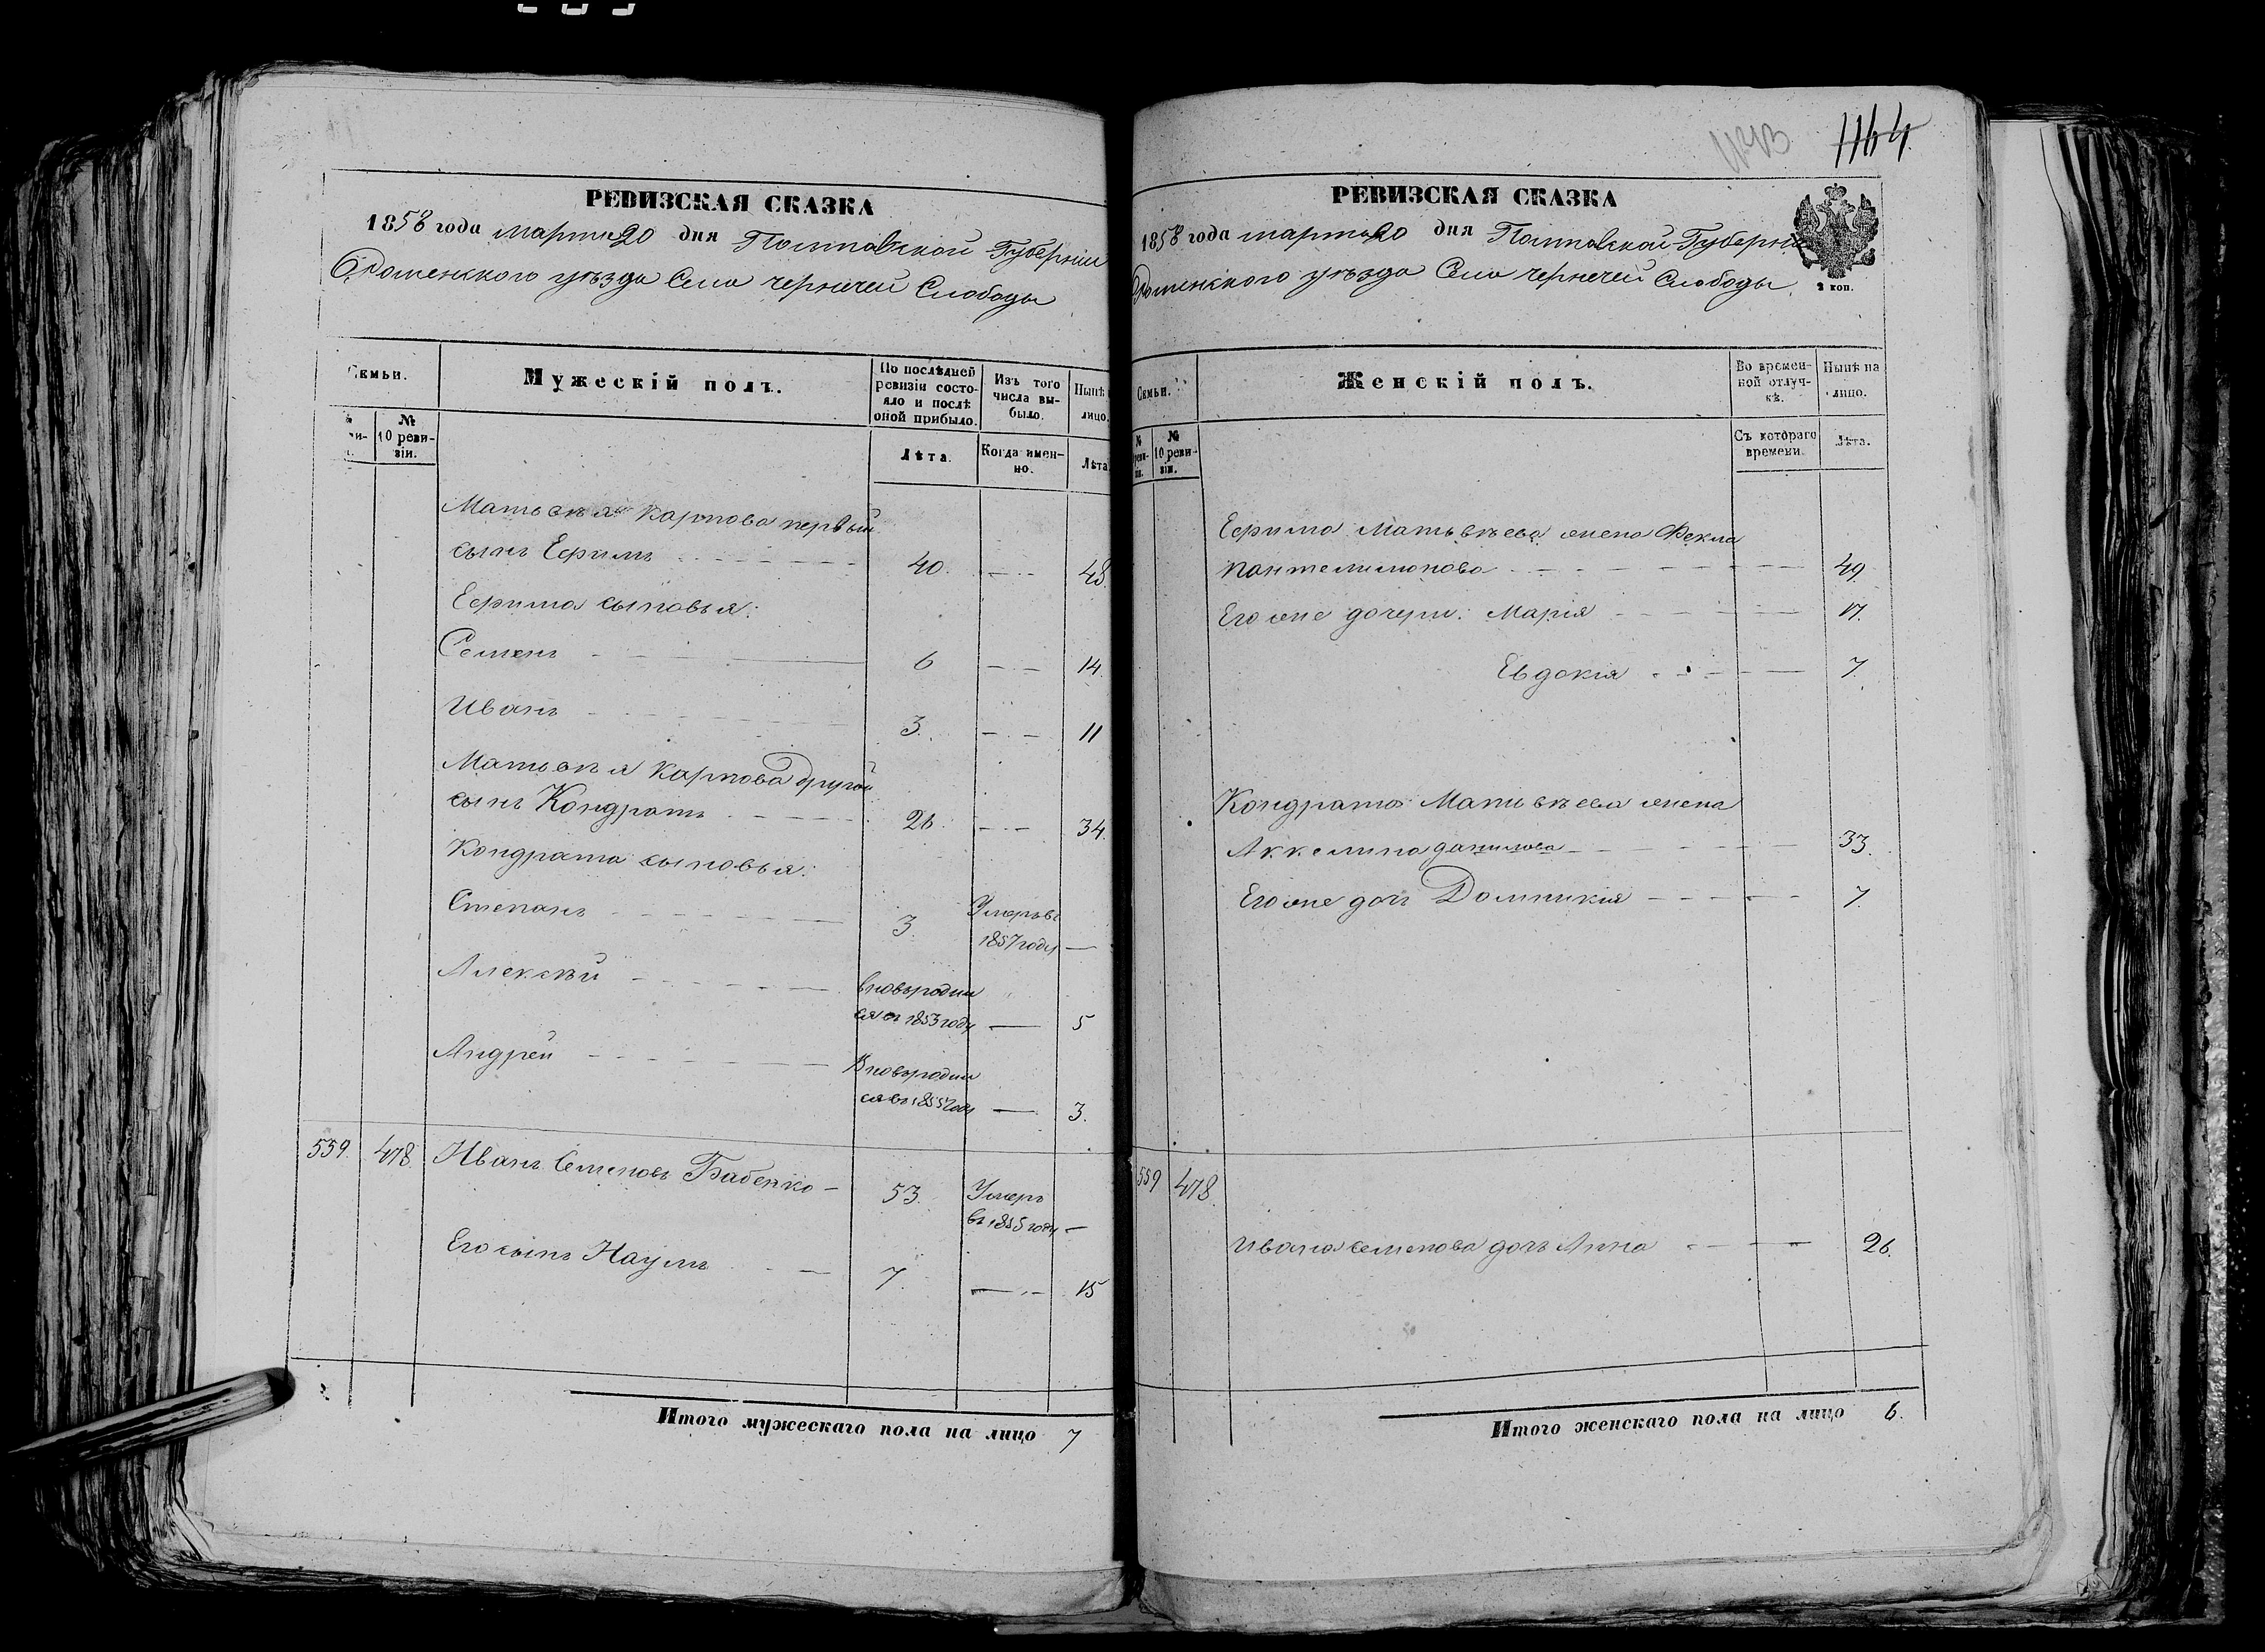 РЕВИЗСКАЯ СКАЗКА
1858 года марта 20 дня Полтавской Губернии
Роменского уѣзда Села Чернечей Слободы
Семьи.
Мужескій полъ.
По послѣдней ревизіи состояло и послѣ оной прибыло.
Изъ того числа выбыло.
Нынѣ
лицо.
№ 10 ревизіи.
Лѣта.
Когда именно.
Лѣта
Матьвѣя Карпова первый
сынъ Ефимъ 40. 48.
Ефима сыновья:
Семенъ 6 14.
Иванъ 3. 11
Матьвѣя Карпова другой
сынъ Кондратъ 26. 34.
Кондрата сыновья:
Степанъ 3. Умеръ въ
1857 году
Алексѣй вновь родил
ся въ 1853 году 5
Андрей Вновь родил
ся въ 1855 году 3.
559. 478. Иванъ Семеновъ Бабенко 53. Умеръ
въ 1855 году
Его сынъ Наумъ 7. 15
Итого мужескаго пола на лицо 7
1164
РЕВИЗСКАЯ СКАЗКА
1858 года марта 20 дня Полтавской Губерніи
Роменского уѣзда Села Чернечей Слободы
2 коп.
Семьи.
Женскій полъ.
Во временной отлучкѣ.
Нынѣ на лицо.
№ 10 ревизіи.
Съ котораго времени.
Лѣта.
Ефима Матьвѣева жена Фекла
Пантелимонова 49
Его же дочери: Марія 17.
Евдокія 7.
Кондрата Матьвѣева жена
Аккелина Данилова 33.
Его же дочь Домникия 7.
559 478.
Ивана Семенова дочь Анна 26.
Итого женскаго пола на лицо 6.